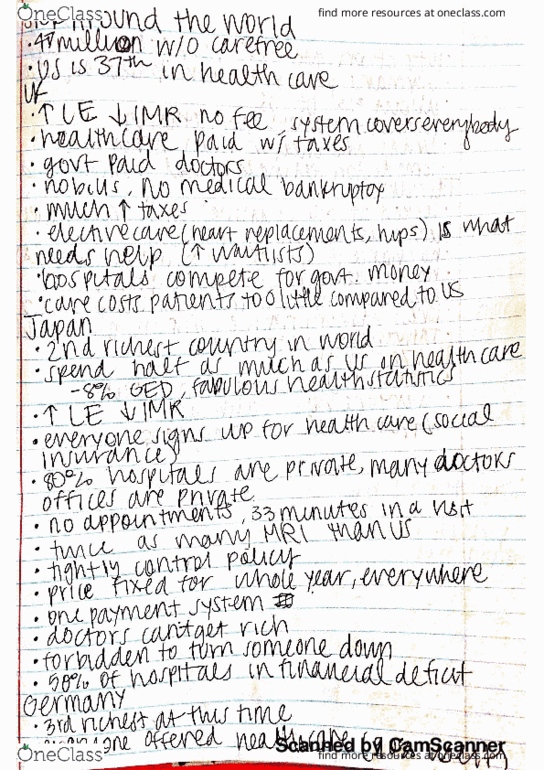 OneClass
find more resources at oneclass.com
Around the world
• 47 million w/o carefree
• US is 37th in health care
UK
• ↑ LE ↓ IMR no fee, system covers everybody
• healthcare paid w/ taxes
• govt paid doctors
• no bills, no medical bankruptcy
• much ↑ taxes
• elective care (heart replacements, hips) is what
needs help (↑ waitlists)
• hospitals compete for govt. money
• care costs patients too little compared to US
Japan
• 2nd richest country in world
• spend half as much as US on health care
- 8% GED, fabulous health statistics
• ↑ LE ↓ IMR
• everyone signs up for health care (social
insurance)
• 80% hospitals are private, many doctors
offices are private
• no appointments, 33 minutes in a visit
• twice as many MRI than US
• tightly control policy
• price fixed for whole year, everywhere
• one payment system
• doctors can't get rich
• forbidden to turn someone down
• 50% of hospitals in financial deficit
Germany
• 3rd richest at this time
offered
Scanned by CamScanner
OneClass
find more resources at oneclass.com